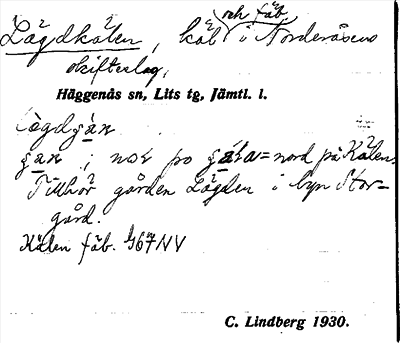 Lägdkälen, käl och fäb i Norderåsens
skifteslag,
Häggenås sn, Lits tg, Jämtl. l.
lògdça᷄n
ça᷄n ; nor po ça᷄la = nord på Kälen.
Tillhör gården Lägden i byn Stor-
gård.
Kälen fäb. 467NV
C. Lindberg 1930.